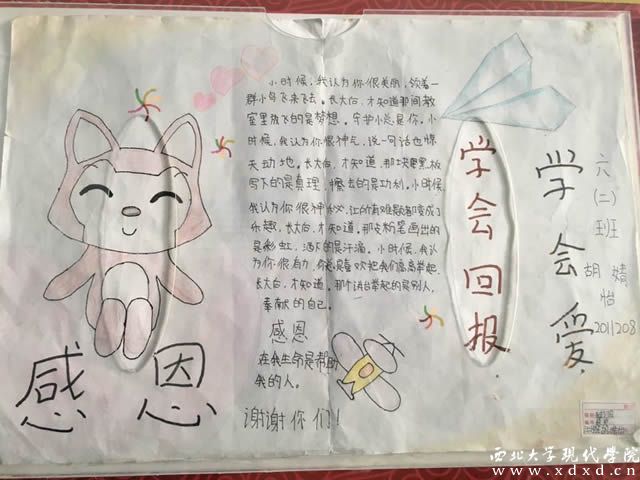 小时候,我认为你很美丽,领着一
群小鸟飞来飞去。长大后,才知道那间教
室里放飞的是梦想。守护
是你。小
时候,我认为你很神气,说一句话也惊
天动地。长大后,才知道,那块黑板
写下的是真理,擦去的是功利。小时候,
我认为你很神秘,让所有难题都变成了
乐趣,长大后,才知道。那支粉笔画出的
是彩虹,洒下的是汗滴。小时候,我认
为你很有力,你总喜欢把我们高高举起,
长大后,才知道。那个讲台举起的是别人,
奉献的自己。
感恩
在我生命是帮助
我的人。
谢谢你们!
感恩
学会回报
学会爱
六(二)班
胡婧怡
2011208
西北大学现代学院
www.xdxd.cn